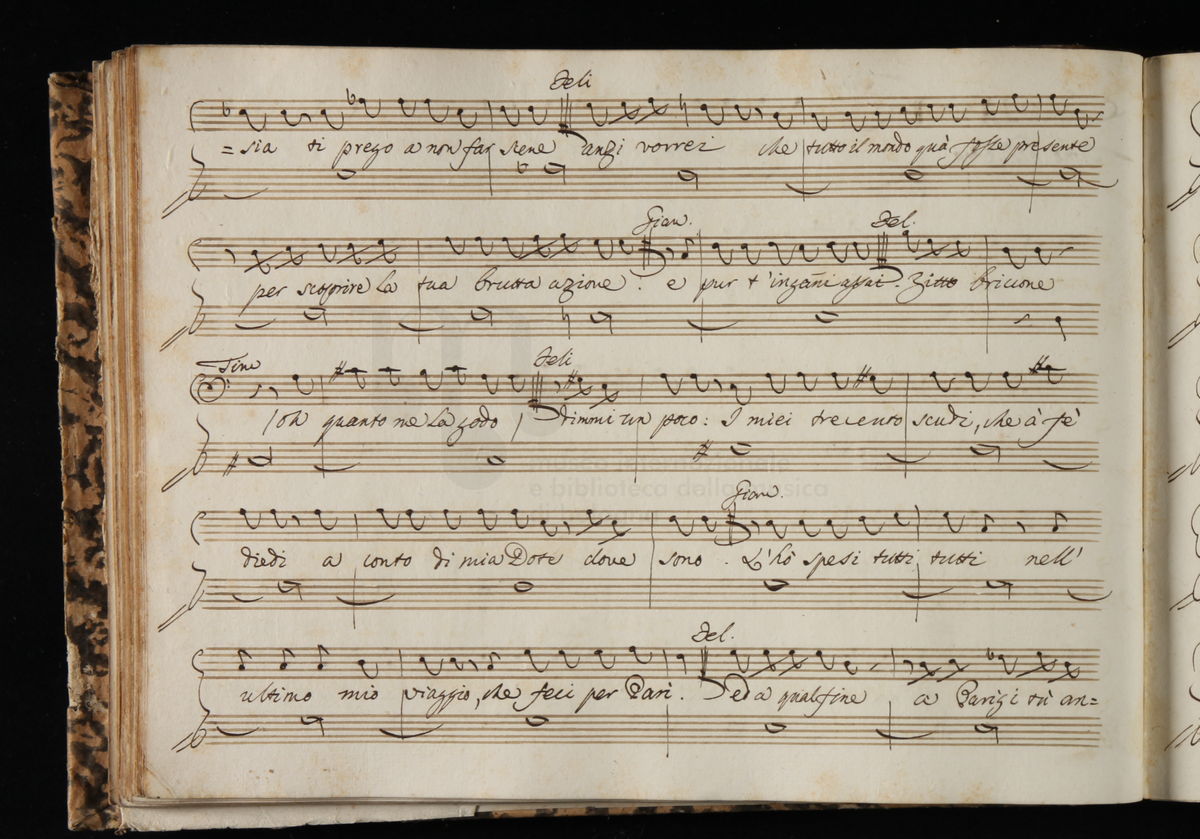 Deli
= sia ti prego a non far scene anzi vorrei che tutto il mondo quà fosse presente
Gian. Del.
per scoprire la tua brutta azione. e pur t'inganni assai. Zitto bricone
Tino Deli
(oh quanto ne la godo) dimmi un poco: I miei trecento scudi, che à fè
museo internazionale
e biblioteca della musica
Gian.
diedi a conto di mia Dote dove sono. L'hò spesi tutti tutti nell'
Del.
ultimo mio viaggio, che feci per Pari. ed a qual fine a Parigi tù an=